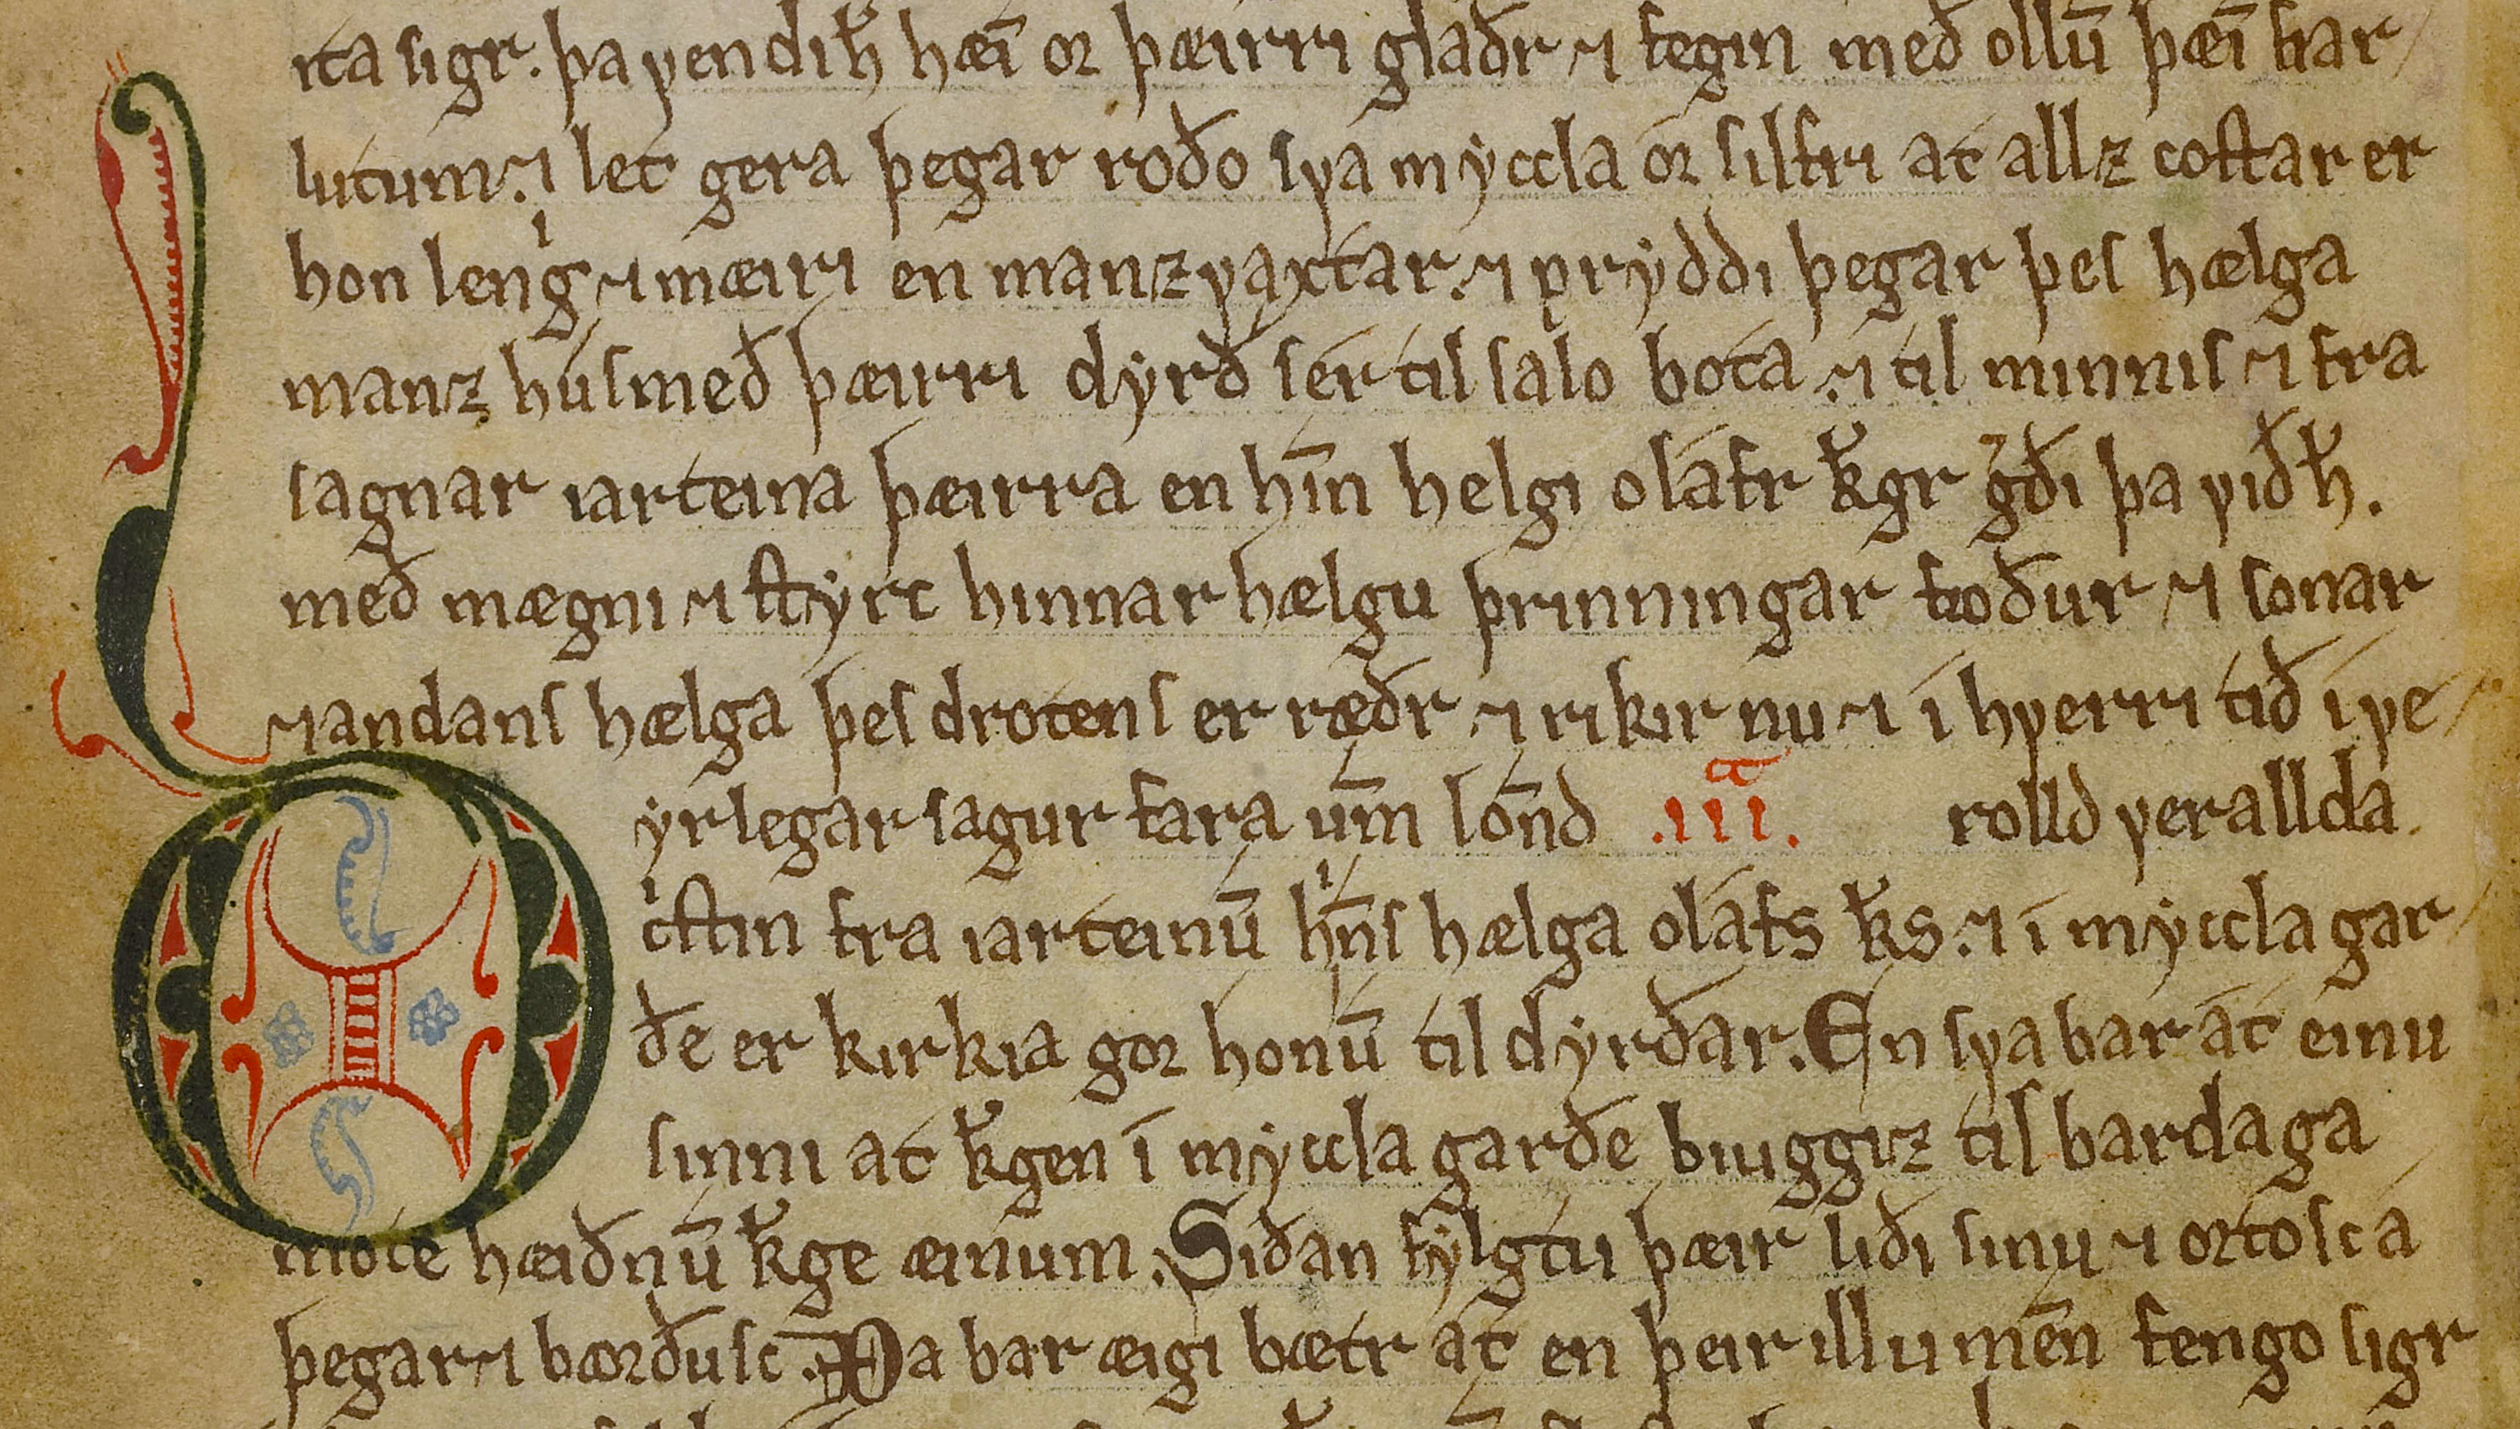 ita sigr. þa ꝩendi h̆ hæı̄ oꝛ þæırrı glaðr ⁊ fegın með ollū þæı̄ har
lutum. ⁊ let gera þegar roðo sꝩa mẏccla oꝛ sılfrı at allz costar er
hon lengͥ ⁊ mæıri en manz ꝩaxtar. ⁊ prẏddı þegar þes hælga
manz hús með þæırrı dẏrð sér til salo bóta. ⁊ til mınnıs ⁊ fra
sagnar ıarteına þæırra en hı̄n helgı oláfr k̆gr g̾ðı þa ꝩıð h̆.
með mægnı ⁊ stẏrc hınnar hælgu þrınnıngar fꝍður ⁊ sonar
⁊ andans hælga þes drotens er ræðr ⁊ rıkır nu ⁊ í hꝩerrı tıð í ꝩe
ẏrlegar sagur fara um̄ lon̄d .ııı.ͣ rolld ꝩerallda.
cͥstın fra ıarteınū hͥn̄s hælga oláfs k̆s. ⁊ í mẏccla gar
ðe er kırkıa goꝛ honū til dẏrðar. En sꝩa bar át eınu
sınnı at k̆gen í mẏccla garðe bıuggız til bardaga
móte hæıðnū k̆ge æınum. Sıðan fẏlgtu þæır lıðı sınu ⁊ oꝛtosc a
þegar ⁊ bꝍꝛðusc. Þa bar æıgı bætr at̄ en þeır ıllu men̄ fengo sıgr